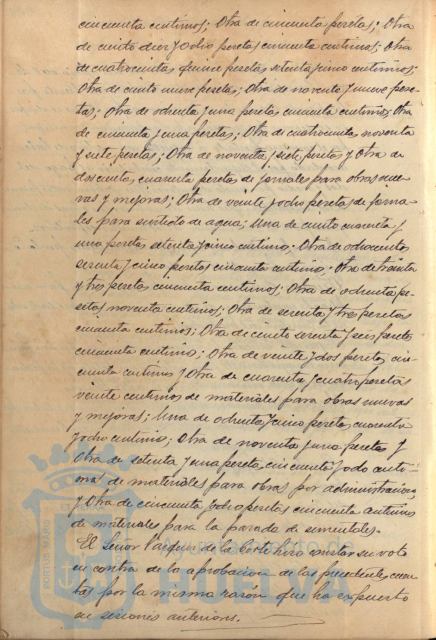 cincuenta centimos; Otra de cincuenta pesetas; Otra
de ciento diez y ocho pesetas cincuenta centimos; Otra
de cuatrocientas quince pesetas setenta y cinco centimos;
Otra de ciento nueve pesetas; Otra de noventa y nueve pese-
tas; Otra de ochenta y una pesetas cincuenta centimos; Otra
de cincuenta y una pesetas; Otra de cuatrocientas noventa
y siete pesetas; Otra de noventa y siete pesetas y Otra de
doscientas cuarenta pesetas de jornales para obras nue-
vas y mejoras; Otra de veinte y ocho pesetas de jorna-
les para surtido de agua; Una de ciento cuarenta y
una pesetas setenta y cinco centimos; Otra de ochocientas
setenta y cinco pesetas cincuenta centimos; Otra de treinta
y tres pesetas cincuenta centimos; Otra de ochenta pe-
setas noventa centimos; Otra de setenta y tres pesetas
cincuenta centimos; Otra de ciento setenta y seis pesetas
cincuenta centimos; Otra de veinte y dos pesetas cin-
cuenta centimos y Otra de cuarenta y cuatro pesetas
veinte centimos de materiales para obras nuevas
y mejoras; Una de ochenta y cinco pesetas cuarenta
y ocho centimos; Otra de noventa y una pesetas y
Otra de setenta y una pesetas cincuenta y ocho centi-
mos de materiales para obras por administracion,
y Otra de cincuenta y ocho pesetas cincuenta centimos
de materiales para la parada de sementales.
El Señor Vazquez de la Corte hizo constar su voto
en contra de la aprobacion de las precedentes cuen-
tas por la misma razón que ha expuesto
en sesiones anteriores.
PORTUS MARIS